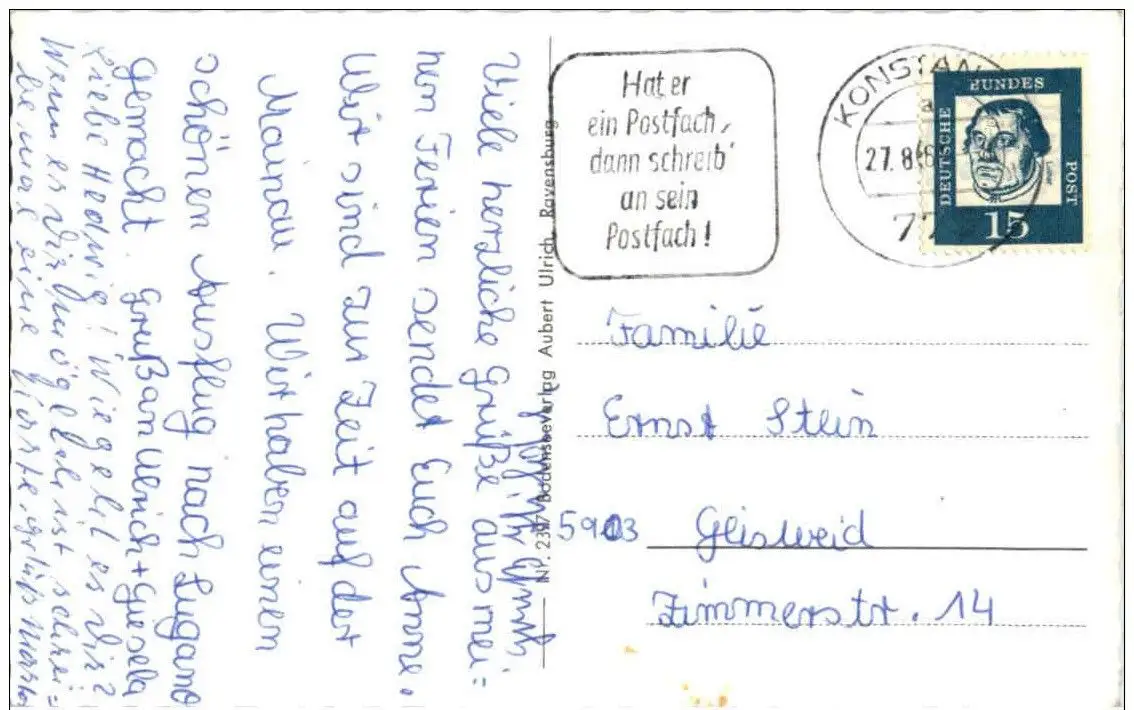 Viele herzliche Grüße aus mei=
nen Ferien sendet Euch Anne.
Wir sind zur Zeit auf der
Mainau. Wir haben einen
schönen Ausflug nach Lugano
gemacht. Gruß an Ulrich + Gisela
Liebe Hedwig! Wie geht es Dir?
Wenn es Dir möglich ist schrei=
be mal eine Karte. Gruß
Nr. 2397 Bodenseeverlag Aubert Ulrich, Ravensburg
Hat er
ein Postfach,
dann schreib'
an sein
Postfach!
KONSTAN
a
27.8.6
77
DEUTSCHE
BUNDES
POST
15
Familie
Ernst Stein
5903 Geisweid
Zimmerstr. 14